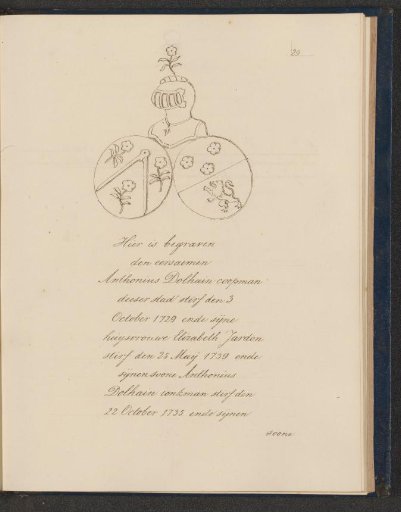 20
Hier is begraven
den eersaemen
Anthonius Dolhain coopman
deeser stad sterf den 3
October 1729 ende sijne
huysvrouwe Elizabeth Jardon
sterf den 25 Maij 1739 ende
synen soone Anthonius
Dolhain conkman sterf den
22 October 1735 ende synen
soone